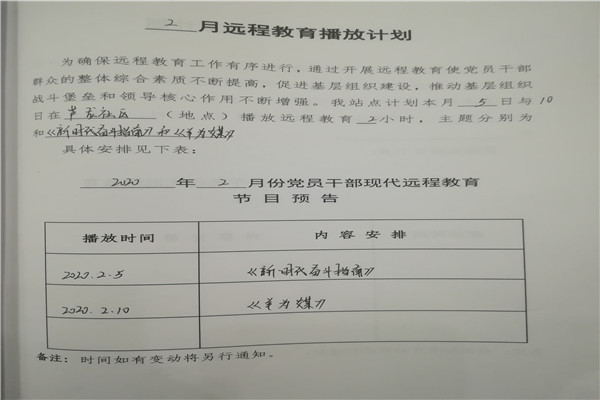 2 月远程教育播放计划
为确保远程教育工作有序进行,通过开展远程教育使党员干部
群众的整体综合素质不断提高,促进基层组织建设,推动基层组织
战斗堡垒和领导核心作用不断增强。我站点计划本月 5 日与10
日在 社区 (地点)播放远程教育 2 小时,主题分别为
和《新时代奋斗指南》和《羊为媒》
具体安排见下表:
2020 年 2 月份党员干部现代远程教育
节目预告
播放时间 内容安排
2020.2.5 《新时代奋斗指南》
2020.2.10 《羊为媒》
备注: 时间如有变动将另行通知。